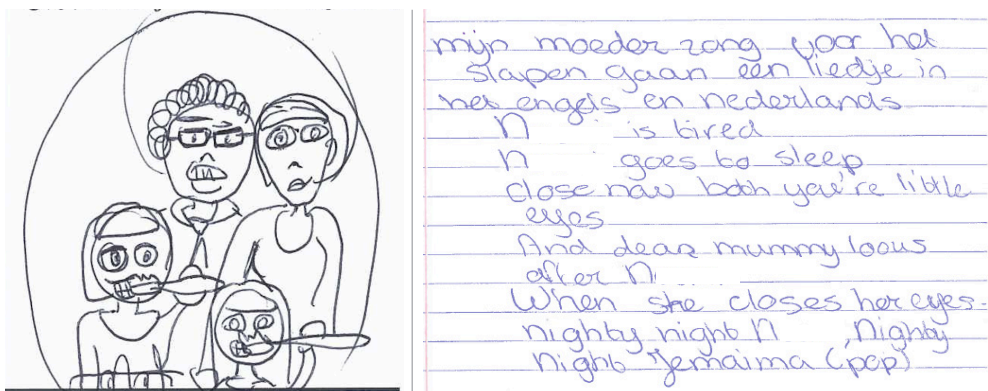 mijn moeder zong voor het
slapen gaan een liedje in
het engels en nederlands
N is tired
N goes to sleep
close now both you're little
eyes
And dear mummy loous
after N.
When she closes her eyes.
nighty night N , Nighty
Night Jemaima (pop)